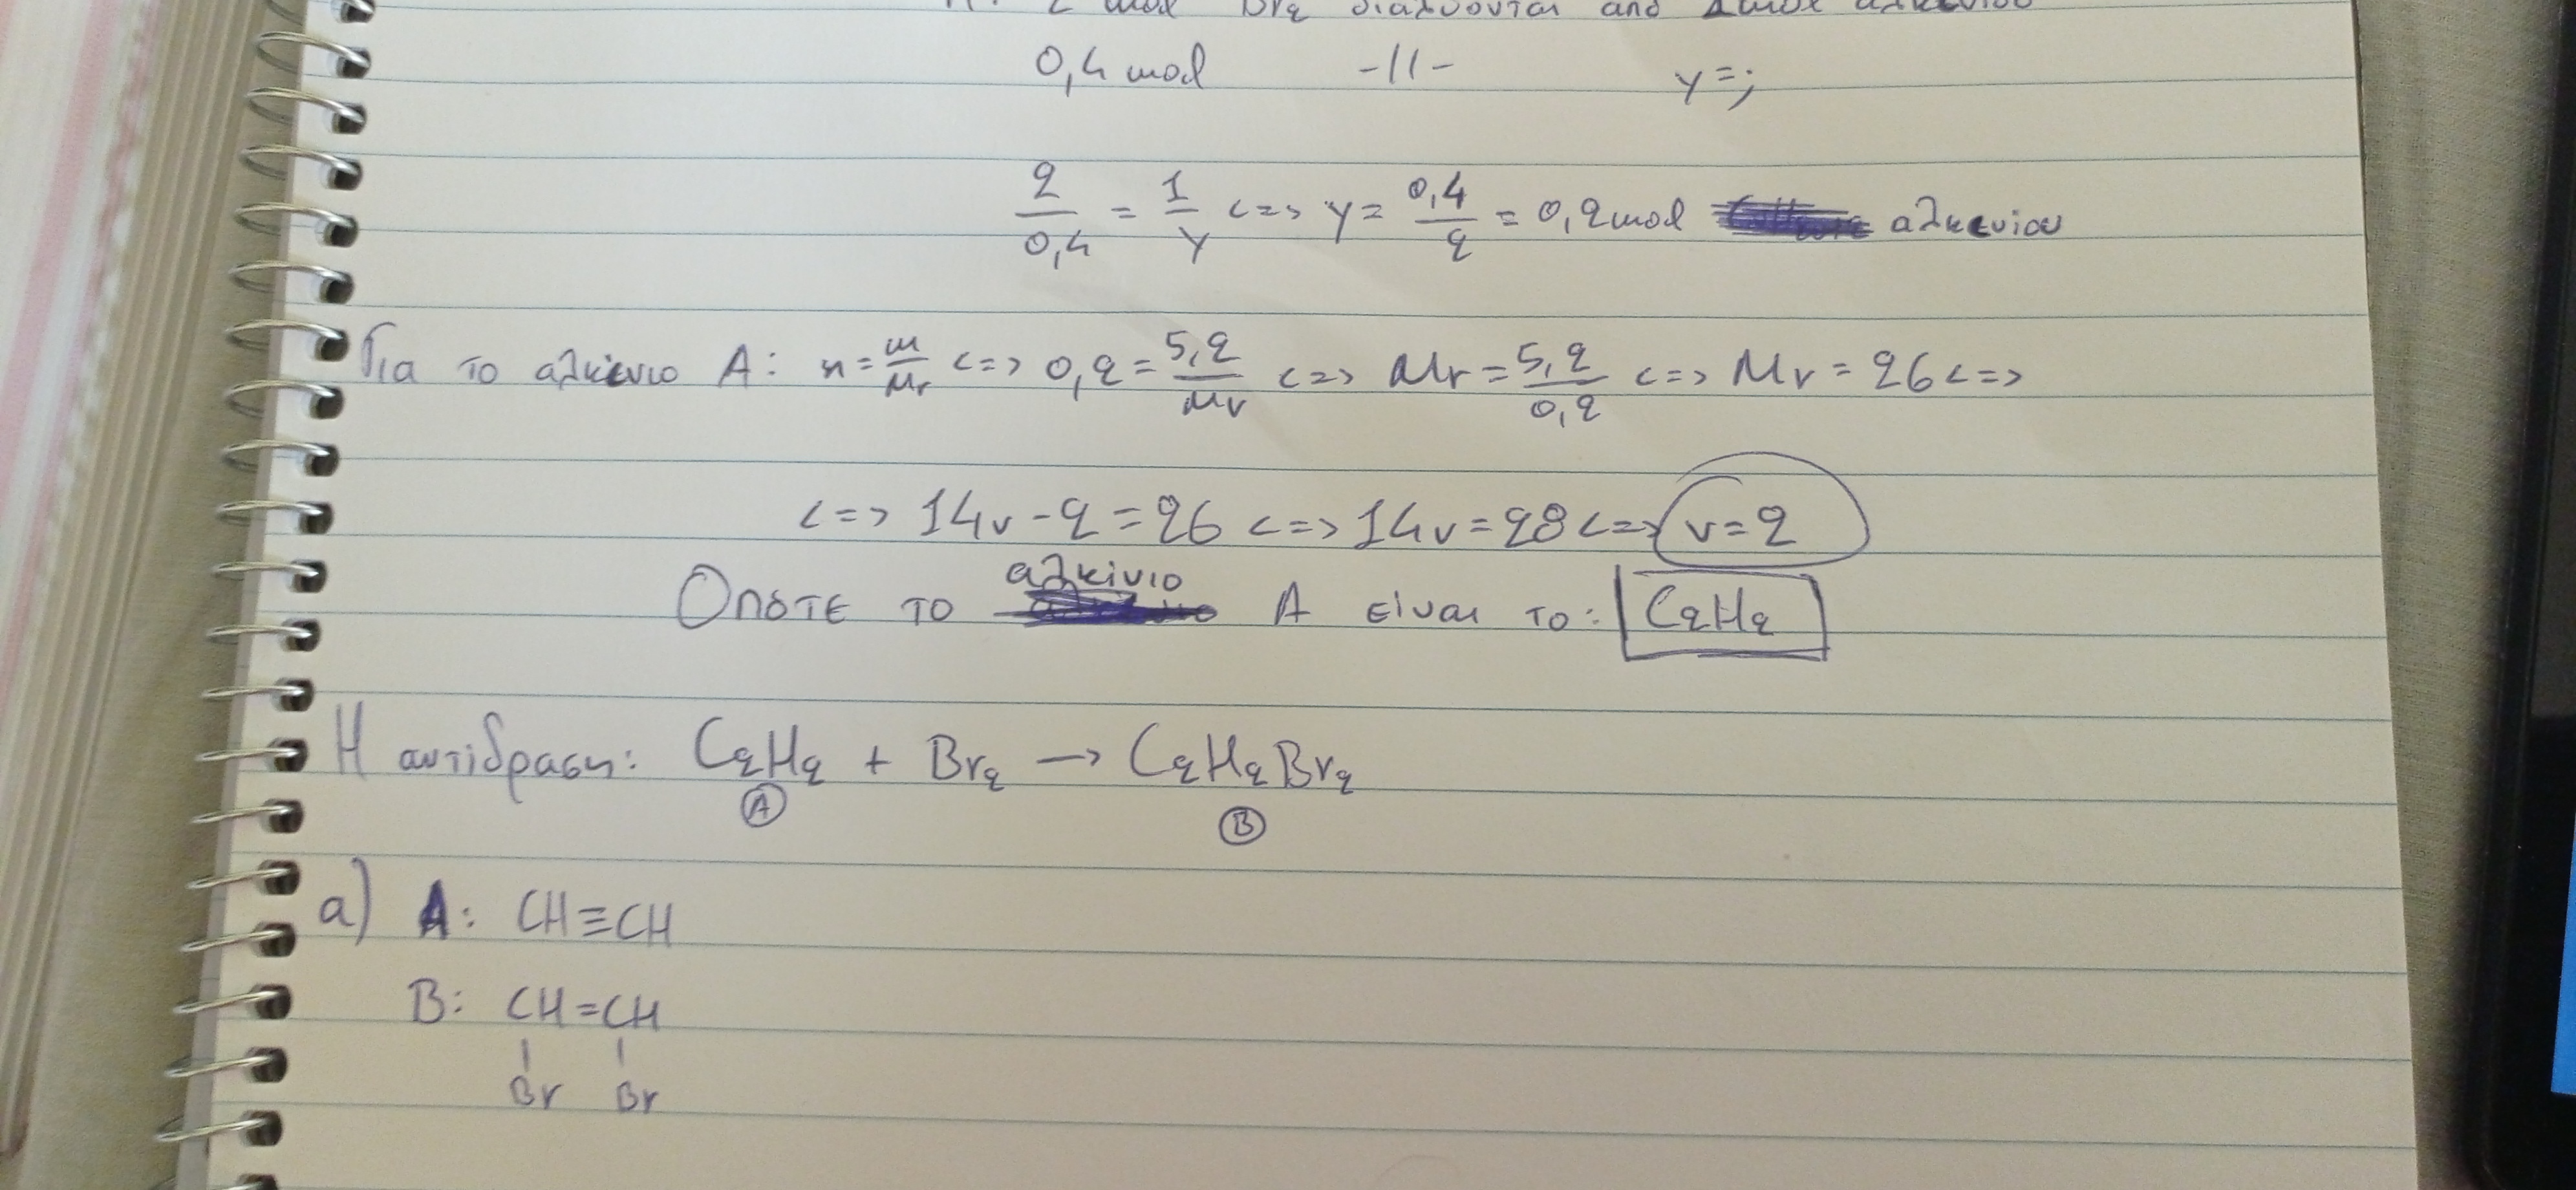 2 mol Br₂ διαλύονται από 1mol αλκενίου
0,4 mol -||- y=;
2/0,4 = 1/y <=> y = 0,4/2 = 0,2 mol αλκενίου
Για το αλκένιο A: n = m/Mr <=> 0,2 = 5,2/Mr <=> Mr = 5,2/0,2 <=> Mr = 26 <=>
<=> 14ν - 2 = 26 <=> 14ν = 28 <=> ν = 2
Οπότε το αλκίνιο A είναι το: C₂H₂
Η αντίδραση: C₂H₂ + Br₂ → C₂H₂Br₂
A B
α) A: CH≡CH
B: CH=CH
Br Br